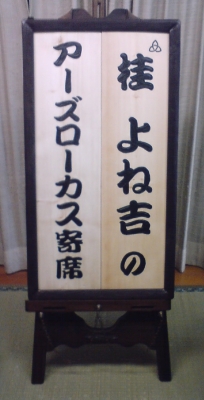 桂 よね吉 の
アーズローカス寄席